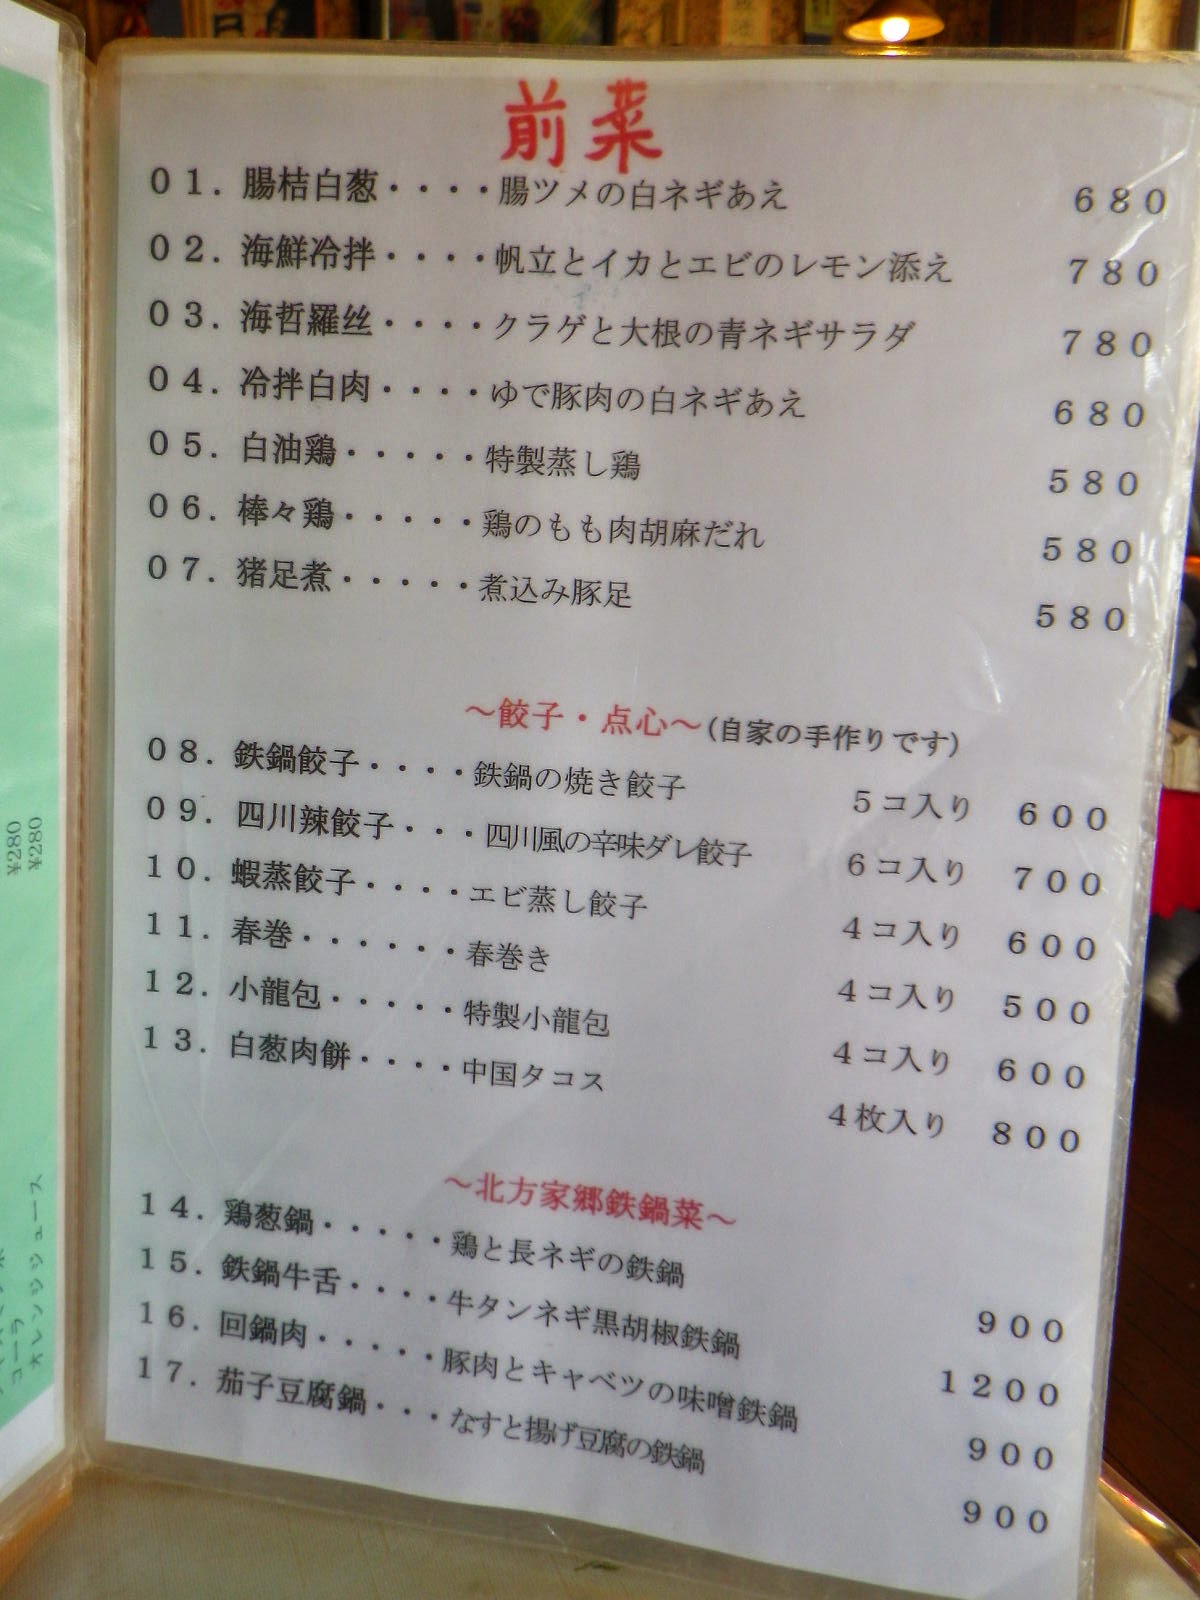 前菜
01．腸桔白葱・・・・腸ツメの白ネギあえ 680
02．海鮮冷拌・・・・帆立とイカとエビのレモン添え 780
03．海哲羅丝・・・・クラゲと大根の青ネギサラダ 780
04．冷拌白肉・・・・ゆで豚肉の白ネギあえ 680
05．白油鶏・・・・・特製蒸し鶏 580
06．棒々鶏・・・・・鶏のもも肉胡麻だれ 580
07．猪足煮・・・・・煮込み豚足 580
～餃子・点心～(自家の手作りです)
08．鉄鍋餃子・・・・鉄鍋の焼き餃子 5コ入り 600
09．四川辣餃子・・・四川風の辛味ダレ餃子 6コ入り 700
10．蝦蒸餃子・・・・エビ蒸し餃子 4コ入り 600
11．春巻・・・・・・春巻き 4コ入り 500
12．小龍包・・・・・特製小龍包 4コ入り 600
13．白葱肉餅・・・・中国タコス 4枚入り 800
～北方家郷鉄鍋菜～
14．鶏葱鍋・・・・・鶏と長ネギの鉄鍋 900
15．鉄鍋牛舌・・・・牛タンネギ黒胡椒鉄鍋 1200
16．回鍋肉・・・・・豚肉とキャベツの味噌鉄鍋 900
17．茄子豆腐鍋・・・なすと揚げ豆腐の鉄鍋 900
オレンジジュース
コーラ